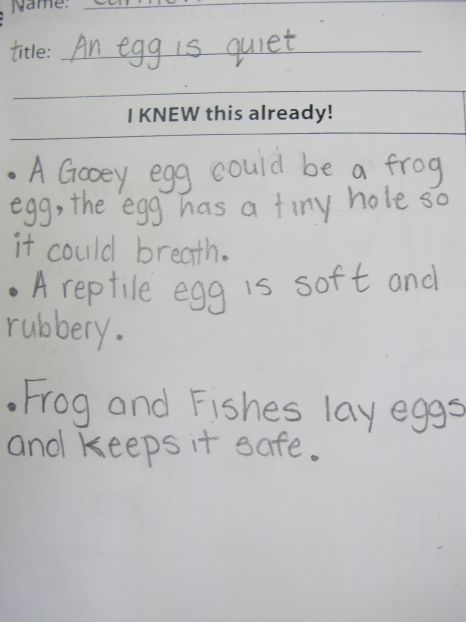 Name:
title: An egg is quiet
I KNEW this already!
• A Gooey egg could be a frog
egg, the egg has a tiny hole so
it could breath.
• A reptile egg is soft and
rubbery.
• Frog and Fishes lay eggs
and keeps it safe.